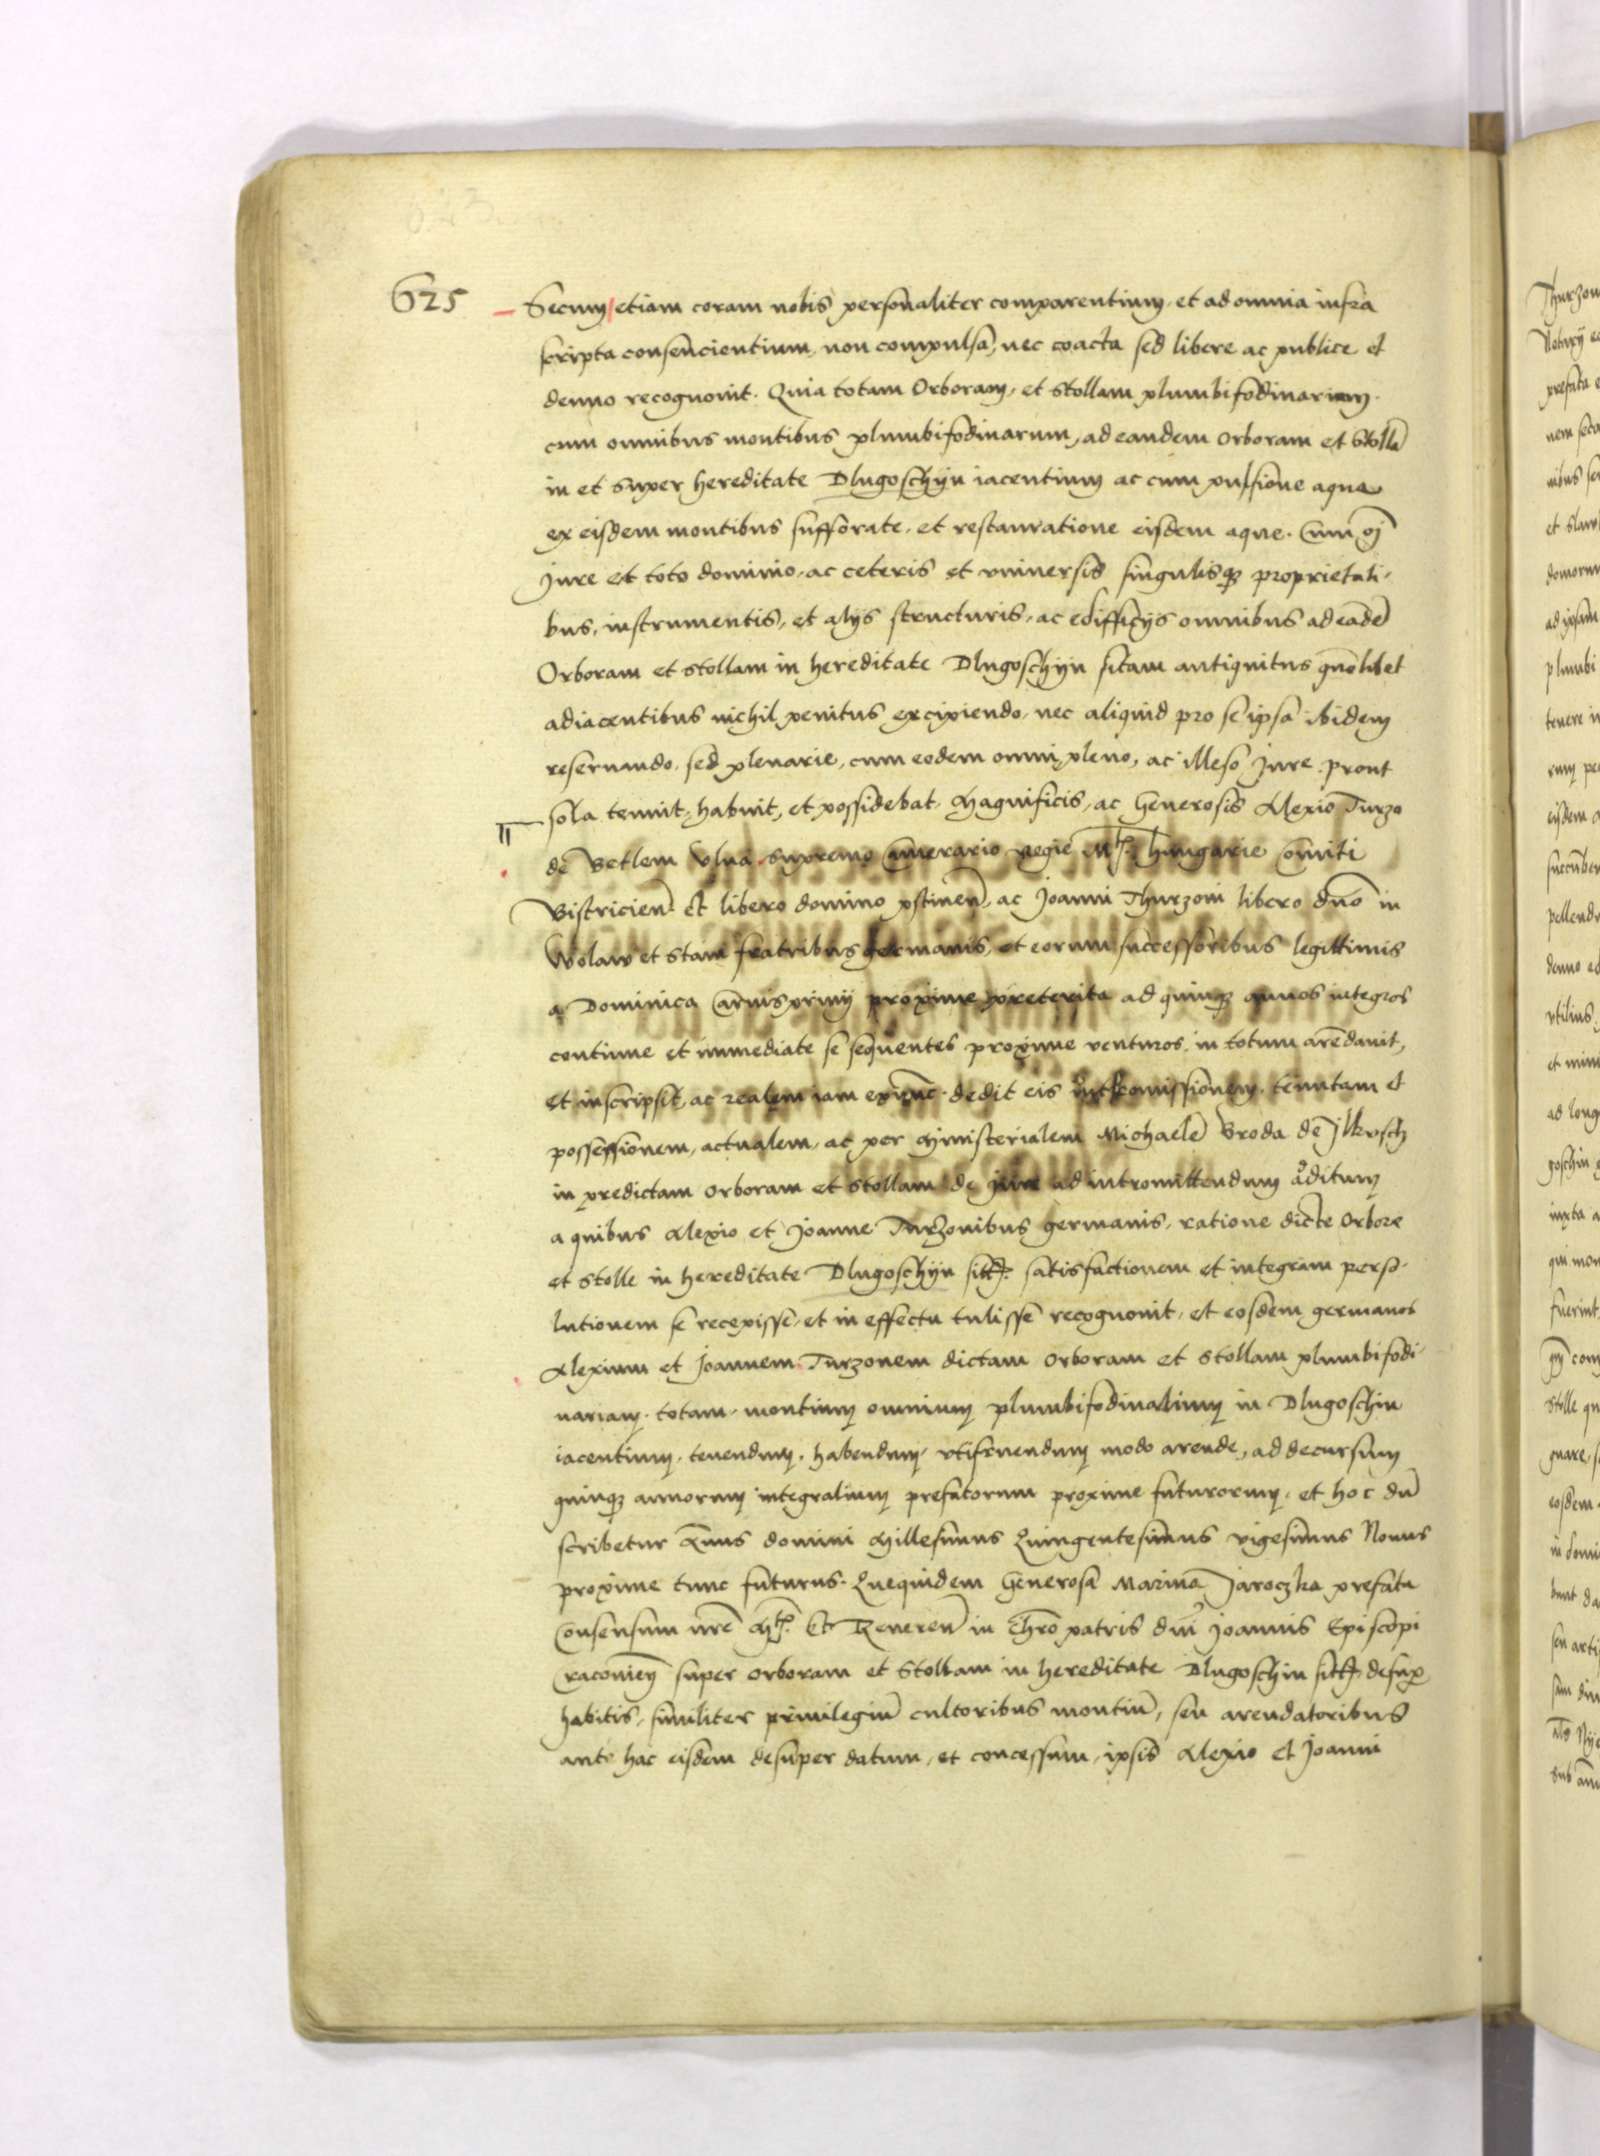 625
Secum etiam coram nobis personaliter comparentium, et ad omnia infra
scripta consencientium, non compulsa, nec coacta sed libere ac publice et
denuo recognouit. Quia totam Orboram, et stollam plumbifodinarum.
cum omnibus montibus plumbifodinarum, ad eandem orboram et Stollā
in et super hereditate Dlugoschÿn iacentium ac cum pulsione aque
ex eisdem montibus sufforate, et restauratione eisdem aque. Cum oī
Jure et toto dominio, ac ceteris et vniuersis singulisqꝫ proprietati-
bus, instrumentis, et alÿs structuris, ac edifficÿs omnibus ad eādē
Orboram et stollam in hereditate Dlugoschÿn sitam antiquitus quōlibet
adiacentibus nichil penitus excipiendo, nec aliquid pro se ipsa ibidem
reseruando, sed plenarie, cum eodem omni, pleno, ac illeso Jure. prout
sola tenuit, habuit, et possidebat. Magnificis, ac Generosis Alexio Turzo
de Betlem supremo regie Hungarie Comiti
Bistricien̄ et libero domino pstinen̄, ac Joanni Thurzoni libero dūo in
Wolaw et Stam fratribus germanis, et eorum successoribus legittimis
a Dominica Carnispriuÿ proxime preterita ad quinqꝫ annos integros
continue et immediate se sequentes proxime venturos. in totum arēdauit,
et inscripsit, ac realem iam exnunc. dedit eis tenutam et
possessionem, actualem, ac per Ministerialem Michaelē Broda de Jlkusch
in predictam orboram et stollam de jure ad intromittendum aditum
a quibus Alexio et Joanne Turzonibus germanis, ratione dicte Orbore
et stolle in hereditate Dlugoschÿn satisfactionem et integram perso-
lutionem se recepisse, et in effectu tulisse recognouit, et eosdem germanos
Alexium et Joannem Turzonem dictam orboram et stollam plumbifodi-
nariam. totam. montium omnium plumbifodinalium in Dlugoschin
iacentium. tenendum, habendum, vtifruendum modo arende, ad decursum
quinqꝫ annorum integralium prefatorum proxime futurorum, et hoc dū
scribetur Annus domini Millesimus Quingentesimus vigesimus Nonus
proxime tunc futurus. Quequidem Generosa Marina Jaroczka prefata
Consensum nrē Reueren̄ in Chrō patris dnī Joannis Episcopi
super orboram et Stollam in hereditate Dlugoschin
habitis, similiter priuilegiū cultoribus montiū, seu arendatoribus
ante hac eisdem desuper datum, et concessum, ipsis Alexio et Joanni